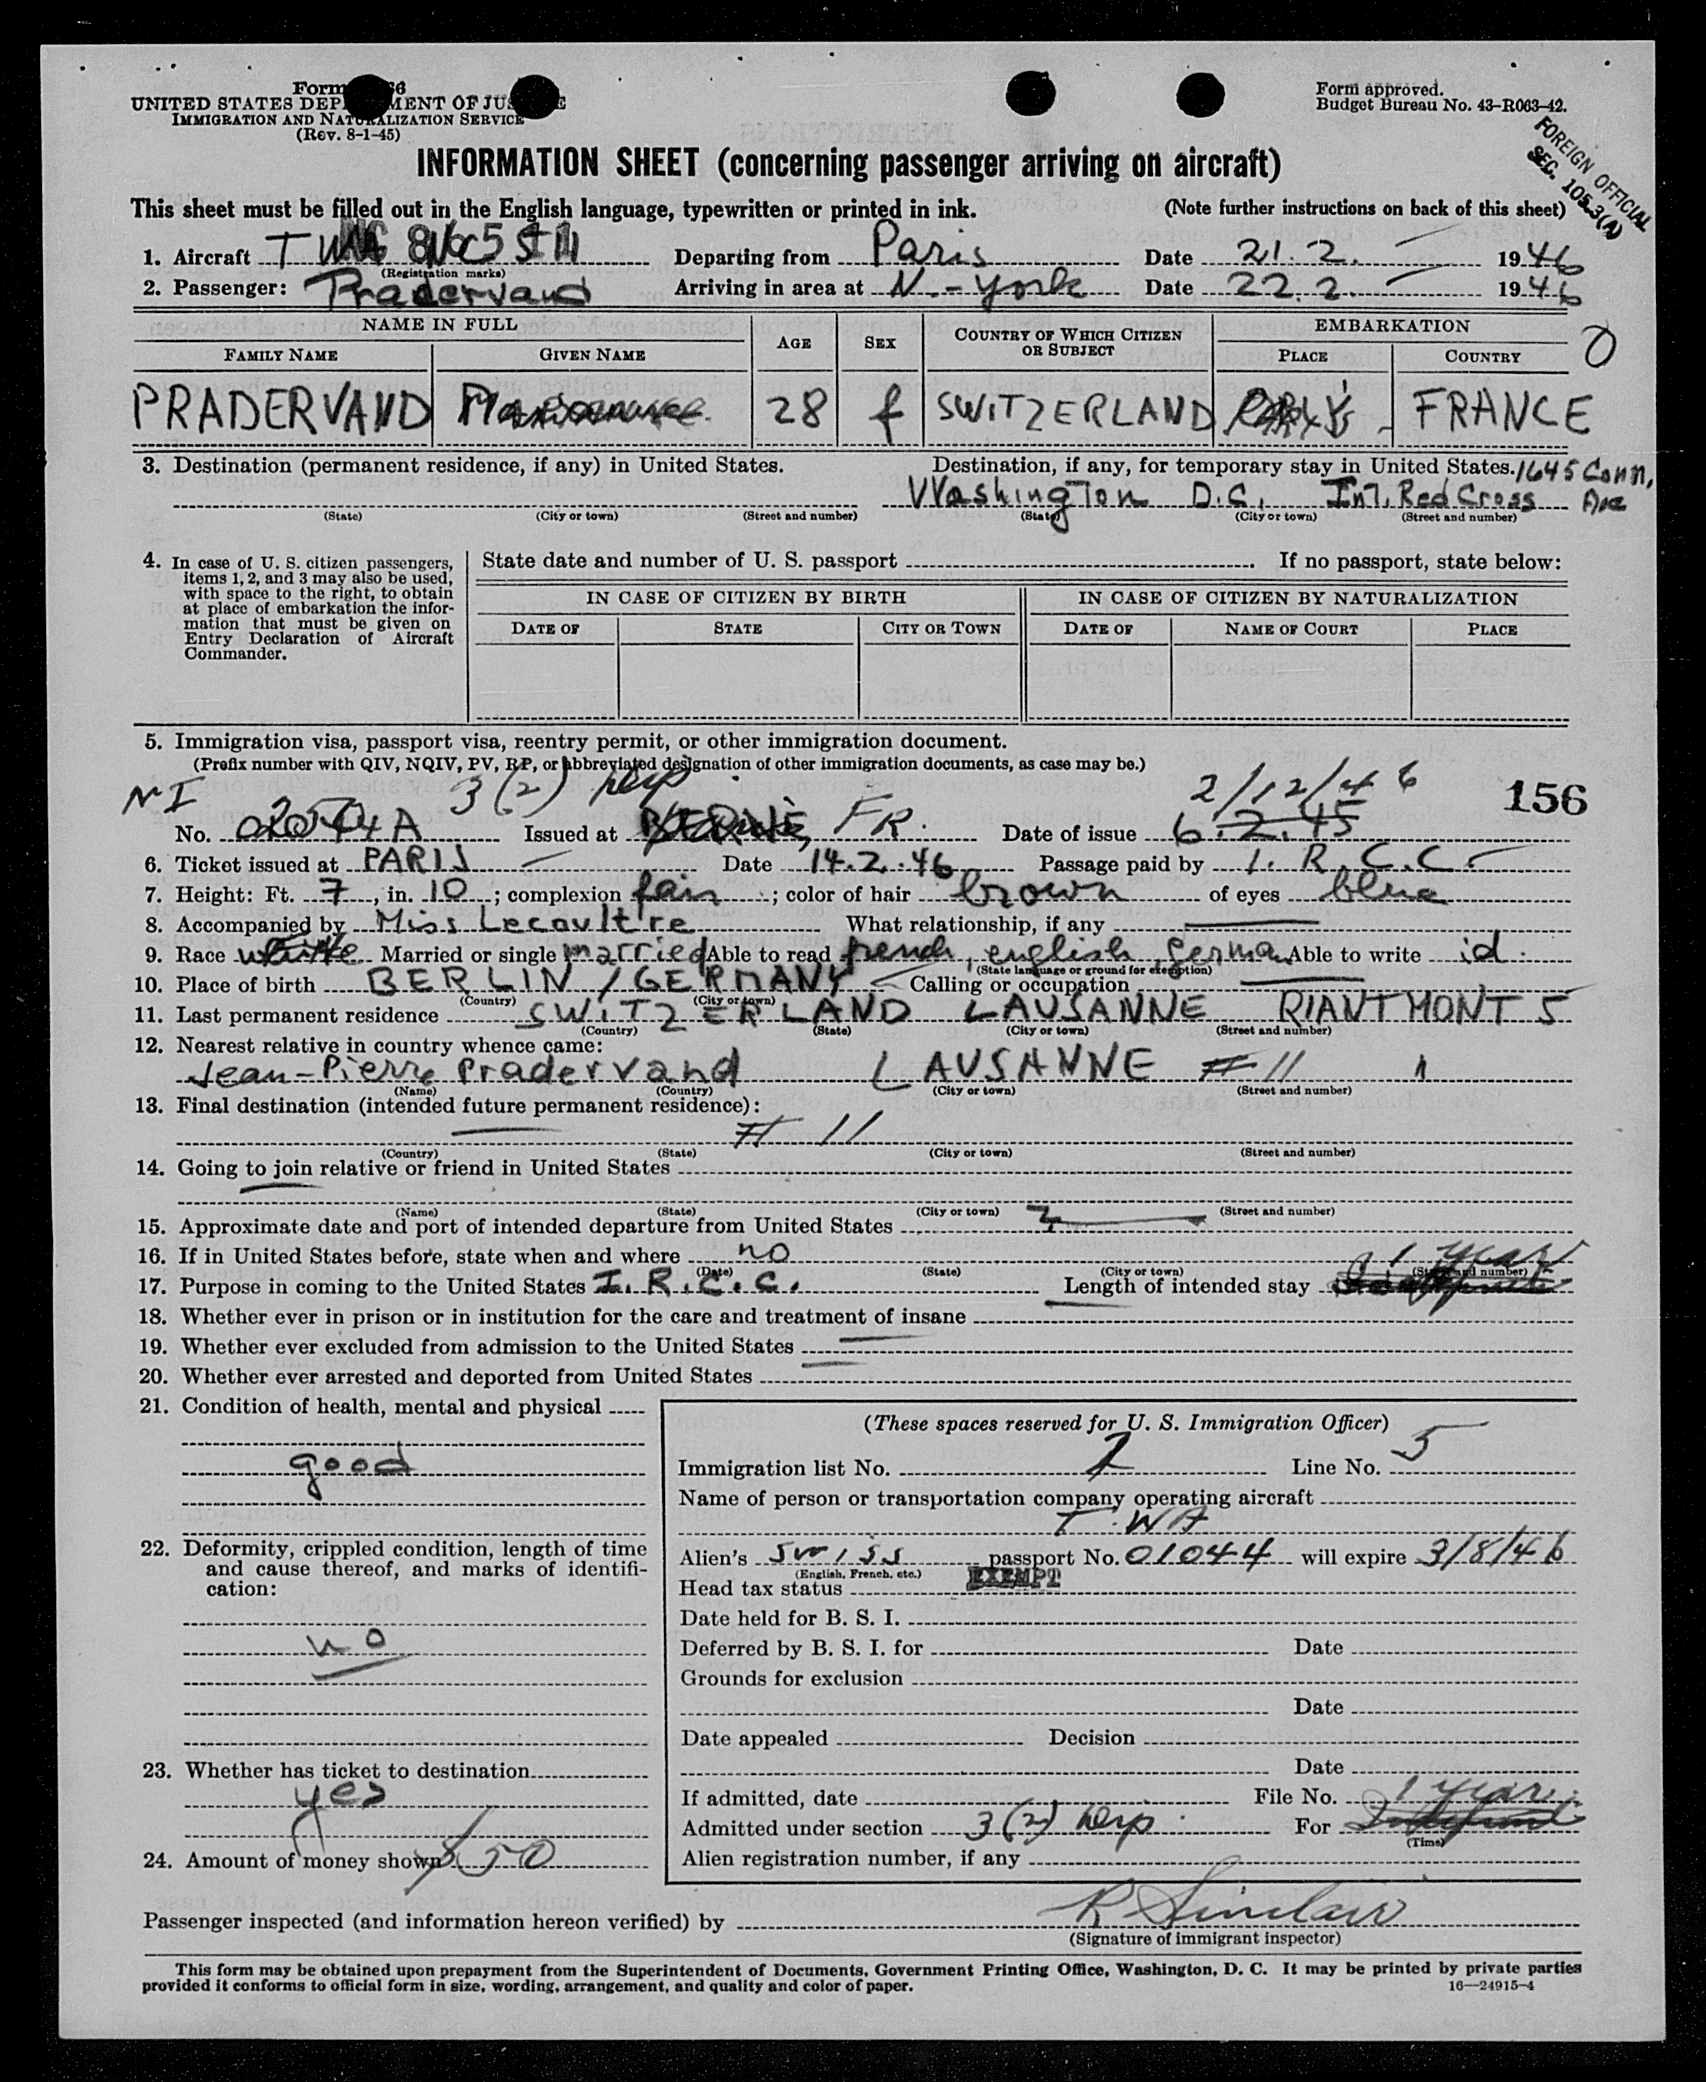 Form 66
UNITED STATES DEPARTMENT OF JUSTICE
IMMIGRATION AND NATURALIZATION SERVICE
(Rev. 8-1-45)
Form approved.
Budget Bureau No. 43-R063-42.
FOREIGN OFFICIAL
SEC. 105.3(A)
INFORMATION SHEET (concerning passenger arriving on aircraft)
This sheet must be filled out in the English language, typewritten or printed in ink. (Note further instructions on back of this sheet)
1. Aircraft TWA Departing from Paris Date 21.2. 1946
(Registration marks)
2. Passenger: Pradervand Arriving in area at N.-York Date 22.2. 1946
NAME IN FULL AGE SEX COUNTRY OF WHICH CITIZEN OR SUBJECT EMBARKATION 0
FAMILY NAME GIVEN NAME PLACE COUNTRY
PRADERVAND 28 f SWITZERLAND FRANCE
3. Destination (permanent residence, if any) in United States. Destination, if any, for temporary stay in United States. 1645 Conn, Ave
Washington D.C. Int. Red Cross
(State) (City or town) (Street and number) (State) (City or town) (Street and number)
4. In case of U. S. citizen passengers, items 1, 2, and 3 may also be used, with space to the right, to obtain at place of embarkation the information that must be given on Entry Declaration of Aircraft Commander.
State date and number of U. S. passport If no passport, state below:
IN CASE OF CITIZEN BY BIRTH IN CASE OF CITIZEN BY NATURALIZATION
DATE OF STATE CITY OR TOWN DATE OF NAME OF COURT PLACE
5. Immigration visa, passport visa, reentry permit, or other immigration document.
(Prefix number with QIV, NQIV, PV, RP, or abbreviated designation of other immigration documents, as case may be.)
3(2) 2/12/46 156
No. Issued at BERNE, FR. Date of issue 6.2.45
6. Ticket issued at PARIS Date 14.2.46 Passage paid by I.R.C.C.
7. Height: Ft. 7, in. 10; complexion fair; color of hair brown of eyes blue
8. Accompanied by Miss Lecoultre What relationship, if any
9. Race white Married or single married Able to read french, english, german Able to write id.
(State language or ground for exemption)
10. Place of birth BERLIN / GERMANY Calling or occupation
(Country) (City or town)
11. Last permanent residence SWITZERLAND LAUSANNE RIANTMONT 5
(Country) (State) (City or town) (Street and number)
12. Nearest relative in country whence came:
Jean-Pierre Pradervand LAUSANNE # 11
(Name) (Country) (City or town) (Street and number)
13. Final destination (intended future permanent residence):
# 11
(Country) (State) (City or town) (Street and number)
14. Going to join relative or friend in United States
(Name) (State) (City or town) (Street and number)
15. Approximate date and port of intended departure from United States
16. If in United States before, state when and where no
(Date) (State) (City or town) (Street and number)
1 year
17. Purpose in coming to the United States I.R.C.C. Length of intended stay
18. Whether ever in prison or in institution for the care and treatment of insane
19. Whether ever excluded from admission to the United States
20. Whether ever arrested and deported from United States
21. Condition of health, mental and physical
good
22. Deformity, crippled condition, length of time and cause thereof, and marks of identification:
no
23. Whether has ticket to destination
yes
24. Amount of money shown $50
(These spaces reserved for U. S. Immigration Officer)
Immigration list No. 2 Line No. 5
Name of person or transportation company operating aircraft
T.WA
Alien's Swiss passport No. 01044 will expire 3/8/46
(English, French, etc.)
Head tax status EXEMPT
Date held for B. S. I.
Deferred by B. S. I. for Date
Grounds for exclusion
Date
Date appealed Decision
Date
If admitted, date File No.
1 year
Admitted under section 3(2) For
(Time)
Alien registration number, if any
Passenger inspected (and information hereon verified) by R Sinclair
(Signature of immigrant inspector)
This form may be obtained upon prepayment from the Superintendent of Documents, Government Printing Office, Washington, D. C. It may be printed by private parties
provided it conforms to official form in size, wording, arrangement, and quality and color of paper. 16—24915-4